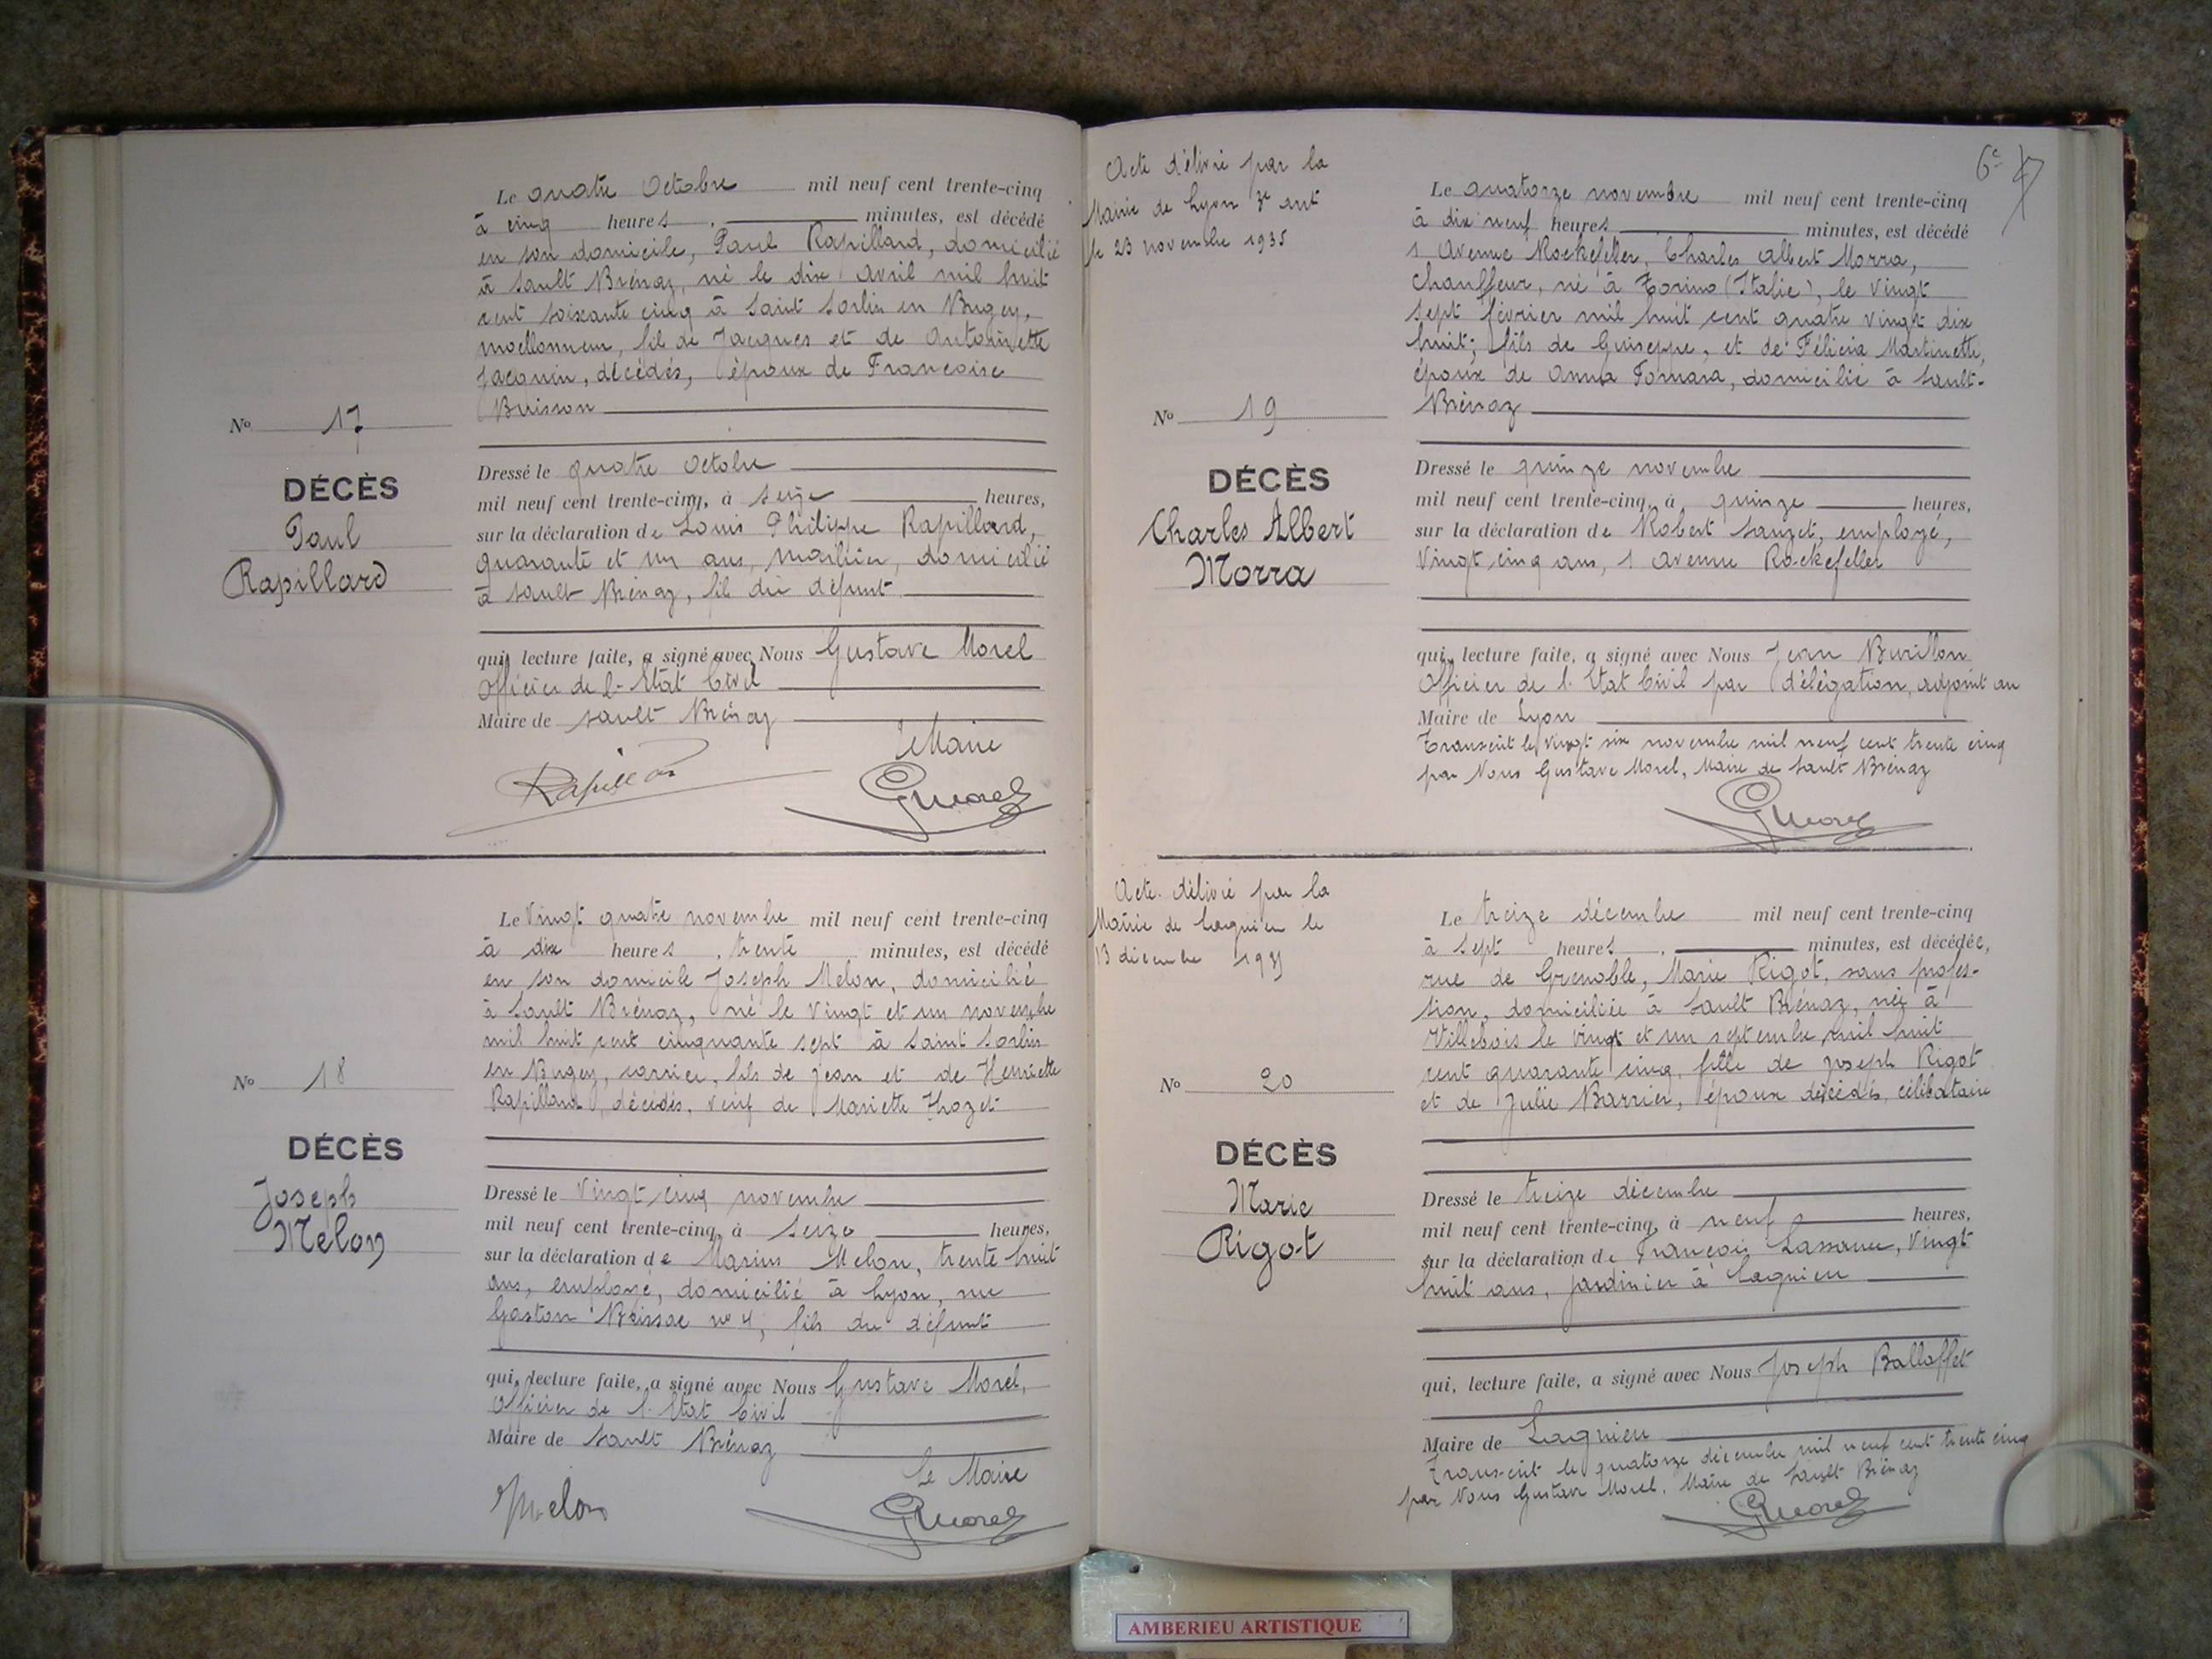 Le quatre Octobre mil neuf cent trente-cinq
à cinq heures, minutes, est décédé
en son domicile, Paul Rapillard, domicilié
à Sault Brénaz, né le dix avril mil huit
cent soixante cinq à Saint Sorlin en Bugey,
moellonneur, fils de Jacques et de Antoinette
Jacquin, décédés, époux de Françoise
Buisson
No 17
DÉCÈS
Paul
Rapillard
Dressé le quatre Octobre
mil neuf cent trente-cinq, à seize heures,
sur la déclaration de Louis Philippe Rapillard,
quarante et un ans, domicilié
à Sault Brénaz, fils du défunt
qui, lecture faite, a signé avec Nous Gustave Morel
Officier de l'Etat Civil
Maire de Sault Brénaz
Le Maire
Rapillard
GMorel
Le Vingt quatre novembre mil neuf cent trente-cinq
à dix heures, trente minutes, est décédé
en son domicile Joseph Melon, domicilié
à Sault Brénaz, né le vingt et un novembre
mil huit cent cinquante sept à Saint Sorlin
en Bugey, carrier, fils de Jean et de Henriette
Rapillard, décédés, veuf de Mariette Thozet
No 18
DÉCÈS
Joseph
Melon
Dressé le Vingt cinq novembre
mil neuf cent trente-cinq, à seize heures,
sur la déclaration de Marius Melon, trente-huit
ans, employé, domicilié à Lyon, rue
Gaston Boissac no 4, fils du défunt
qui, lecture faite, a signé avec Nous Gustave Morel,
Officier de l'Etat Civil
Maire de Sault Brénaz
Le Maire
Melon
GMorel
Acte délivré par la
Mairie de Lyon 3e arrt
le 23 novembre 1935
6e
Le quatorze novembre mil neuf cent trente-cinq
à dix neuf heures minutes, est décédé
1 Avenue Rockefeller, Charles Albert Morra,
Chauffeur, né à Torino (Italie), le vingt
sept février mil huit cent quatre vingt dix
huit; fils de Guiseppe, et de Félicia Martinette,
époux de Anna Fornara, domicilié à Sault-
Brénaz
No 19
DÉCÈS
Charles Albert
Morra
Dressé le quinze novembre
mil neuf cent trente-cinq, à quinze heures,
sur la déclaration de Robert Sauzet, employé,
Vingt cinq ans, 1 avenue Rockefeller
qui, lecture faite, a signé avec Nous Jean Burillon
Officier de l'Etat Civil par délégation, adjoint au
Maire de Lyon
Transcrit le vingt six novembre mil neuf cent trente cinq
par Nous Gustave Morel, Maire de Sault Brénaz
GMorel
Acte délivré par la
Mairie de Lagnieu le
13 décembre 1935
Le treize décembre mil neuf cent trente-cinq
à sept heures, minutes, est décédée,
rue de Grenoble, Marie Rigot, sans profes-
sion, domiciliée à Sault Brénaz, née à
Villebois le vingt et un septembre mil huit
cent quarante cinq, fille de Joseph Rigot
et de Julie Barrier, époux décédés, célibataire
No 20
DÉCÈS
Marie
Rigot
Dressé le treize décembre
mil neuf cent trente-cinq, à neuf heures,
sur la déclaration de François Vingt
huit ans, jardinier à Lagnieu
qui, lecture faite, a signé avec Nous Joseph Balloffet
Maire de Lagnieu
Transcrit le quatorze décembre mil neuf cent trente cinq
par Nous Gustave Morel, Maire de Sault Brénaz
GMorel
AMBERIEU ARTISTIQUE